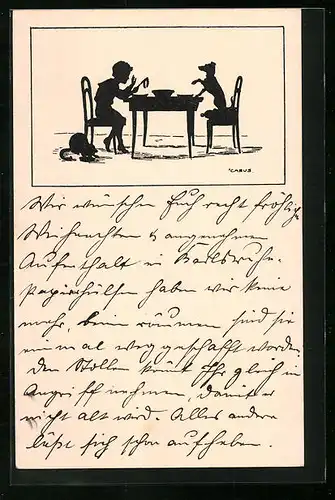 CASUS
Wir wünschen Euch recht fröhliche
Weihnachten & angenehmen
Aufenthalt in Karlsruhe.
Papierhülsen haben wir keine
mehr, beim räumen sind sie
einmal weggeschafft worden.
den Stollen könnt Ihr gleich in
Angriff nehmen, damit er
nicht alt wird. Alles andere
läßt sich schon aufheben.